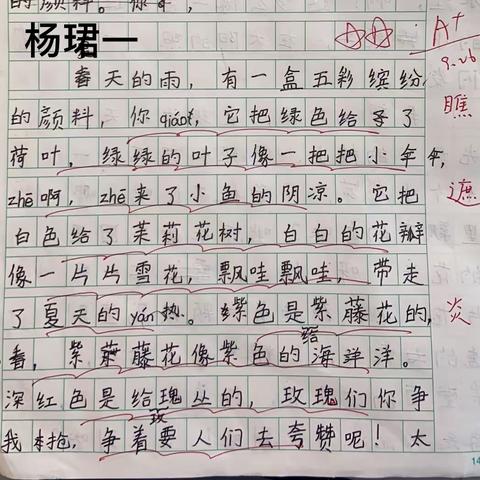 的颜料。你
杨珺一
A+
9.26
春天的雨，有一盒五彩缤纷
的颜料，你qiáoꞏ，它把绿色给予了
瞧
荷叶，绿绿的叶子像一把把小伞，
zhē啊，zhē来了小鱼的阴凉。它把
遮
白色给了茉莉花树，白白的花瓣
像一片片雪花，飘哇飘哇，带走
了夏天的yán热。紫色是紫藤花的，
炎
给
看，紫藤花像紫色的海洋洋。
深红色是给瑰丛的，玫瑰们你争
玫
我抢，争着要人们去夸赞呢！太
14